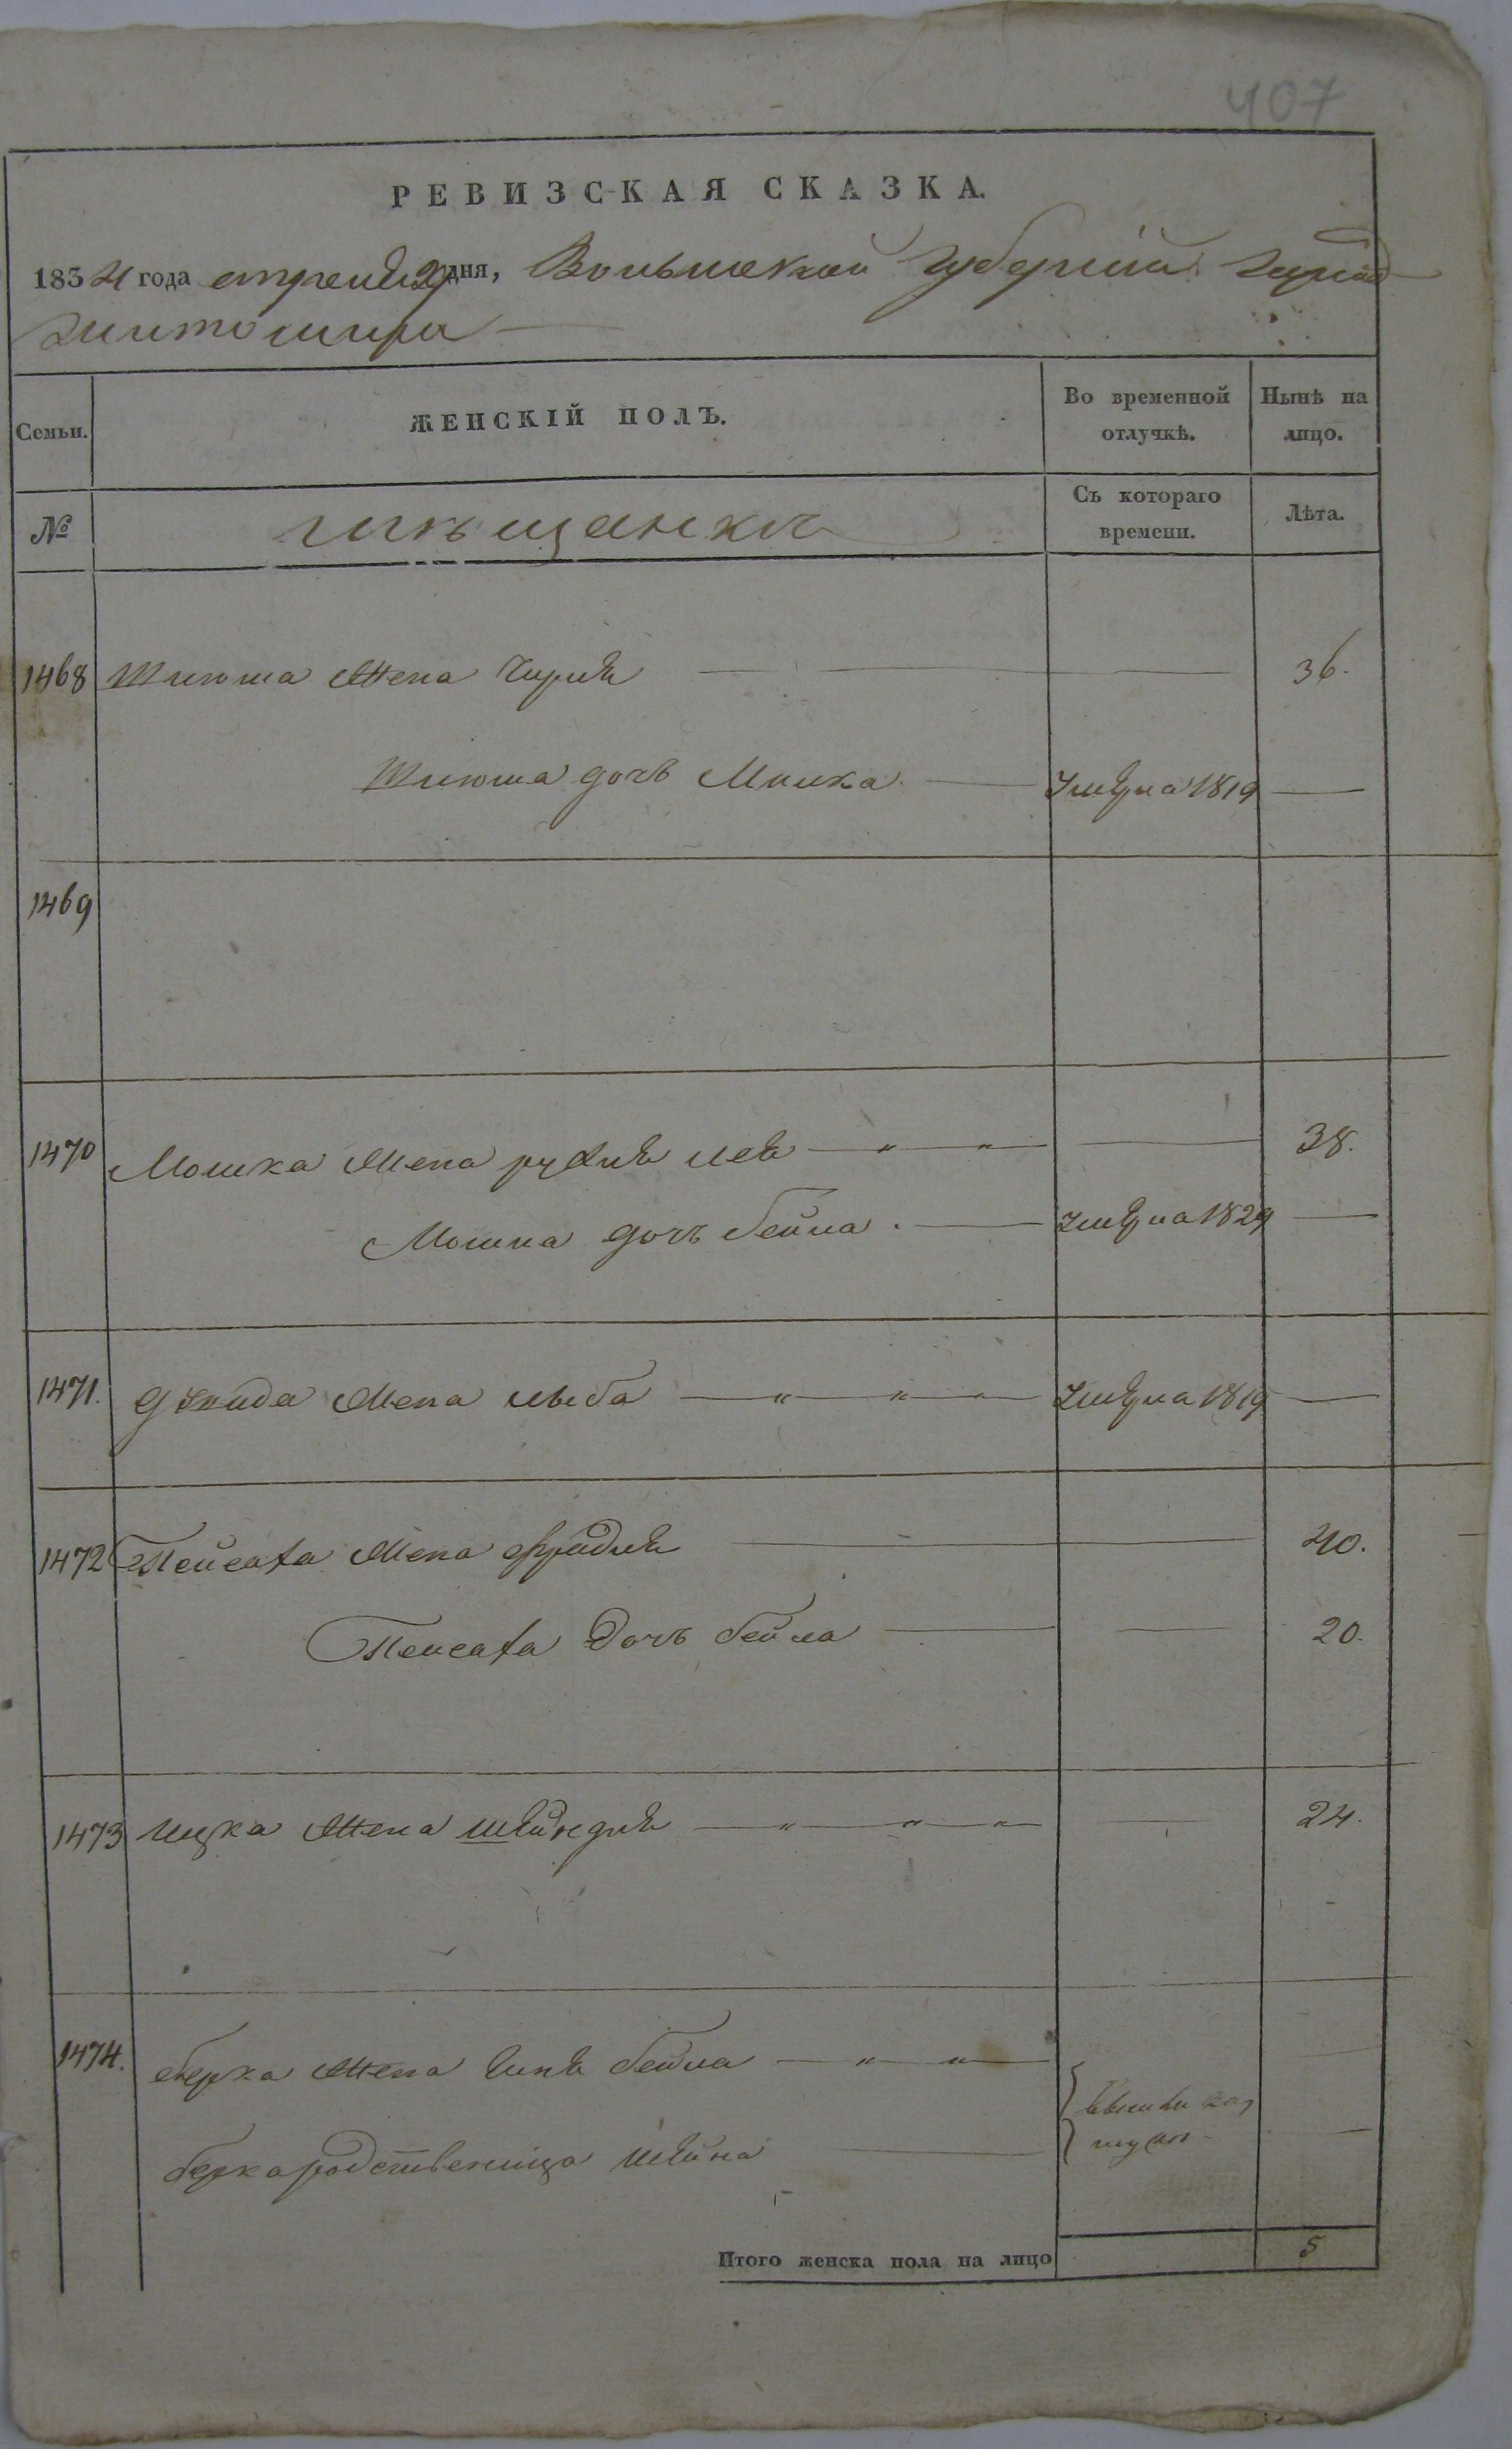 407
РЕВИЗСКАЯ СКАЗКА.
1834 года апреля дня, Волынской губернии города
Житомира
Семьи. ЖЕНСКІЙ ПОЛЪ. Во временной отлучкѣ. Нынѣ на лицо.
№ мѣщанки Съ котораго времени. Лѣта.
1468 Шлиома жена 36.
Шлиома дочь Малка 1819
1469
1470 Мошка жена лея 38.
Мошка дочь бейла 1829
1471. жена либа 1819
1472 Пейсаха жена фрадля 40.
Пейсаха дочь бейла 20.
1473 ицка жена шейндля 24.
1474. берка жена бейла
берка родственица шейна
Итого женска пола на лицо 5